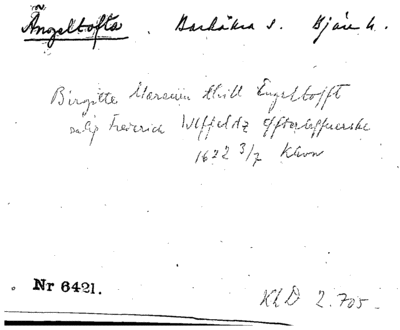 Ängeltofta . Barkåkra s. Bjäre h.
Birgitte till Engeltofft
salig Frederick Ulffeldz Effterleffuerske
1622 3/7 Khvn
Nr 6421.
KLD 2.705